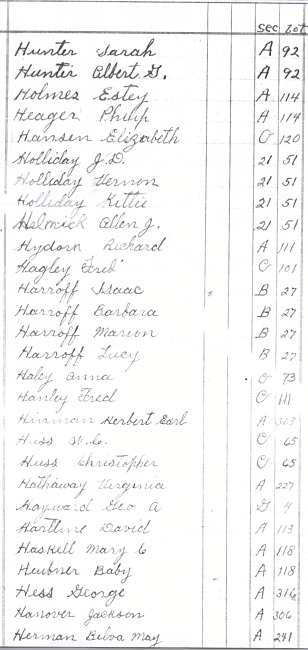 Sec Lot
Hunter Sarah A 92
Hunter Albert G. A 92
Holmes Estey A 114
Heager Philip A 114
Hansen Elizabeth O 120
Holliday J.D. 21 51
Holliday Vernon 21 51
Holliday Kittie 21 51
Helmick Allen J. 21 51
Hydorn Richard A 111
Hagley Fred O 101
Harroff Isaac B 27
Harroff Barbara B 27
Harroff Marion B 27
Harroff Lucy B 27
Haley Anna O 73
Hanley Fred O 111
Hinman Herbert Earl A 303
Huss W.C. O 65
Huss Christopher O 65
Hathaway Virginia A 227
Hayward Geo A G 4
Hartline David A 113
Haskell Mary C A 118
Huibner Baby A 118
Hess George A 316
Hanover Jackson A 306
Herman Bilva May A 241